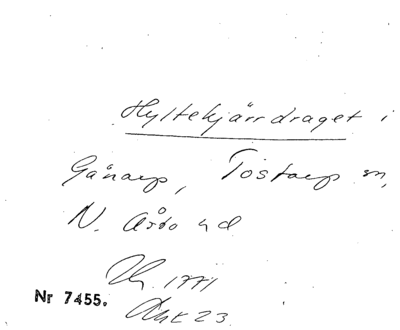 Hyltekjärrdraget i
Gånarp, Tostarp sn,
N. Åsbo hd
1771
Nr 7455.
Akt 23